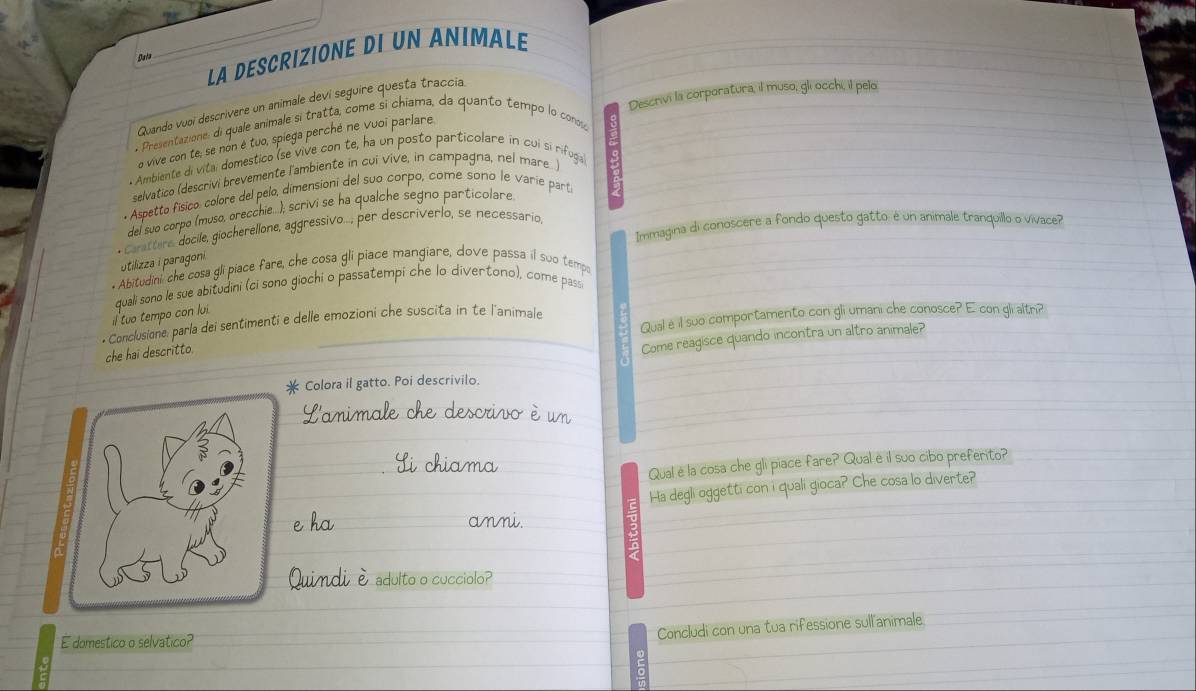 Data
LA DESCRIZIONE DI UN ANIMALE
Quando vuoi descrivere un animale devi seguire questa traccia.
• Presentazione: di quale animale si tratta, come si chiama, da quanto tempo lo conosc
o vive con te; se non è tuo, spiega perché ne vuoi parlare.
• Ambiente di vita: domestico (se vive con te, ha un posto particolare in cui si rifugia)
selvatico (descrivi brevemente l'ambiente in cui vive, in campagna, nel mare...)
• Aspetto fisico: colore del pelo, dimensioni del suo corpo, come sono le varie parti
del suo corpo (muso, orecchie...); scrivi se ha qualche segno particolare.
• Carattere: docile, giocherellone, aggressivo...; per descriverlo, se necessario,
utilizza i paragoni.
• Abitudini: che cosa gli piace fare, che cosa gli piace mangiare, dove passa il suo tempo
quali sono le sue abitudini (ci sono giochi o passatempi che lo divertono), come passi
il tuo tempo con lui.
• Conclusione: parla dei sentimenti e delle emozioni che suscita in te l'animale
che hai descritto.
Colora il gatto. Poi descrivilo.
Presentazione
L'animale che descrivo è un
. Si chiama
e ha anni.
Quindi è adulto o cucciolo?
ente
È domestico o selvatico?
Aspetto fisico
Descrivi la corporatura, il muso, gli occhi, il pelo.
Carattere
Immagina di conoscere a fondo questo gatto: è un animale tranquillo o vivace?
Qual è il suo comportamento con gli umani che conosce? E con gli altri?
Come reagisce quando incontra un altro animale?
Abitudini
Qual è la cosa che gli piace fare? Qual è il suo cibo preferito?
Ha degli oggetti con i quali gioca? Che cosa lo diverte?
sione
Concludi con una tua rifessione sull'animale.